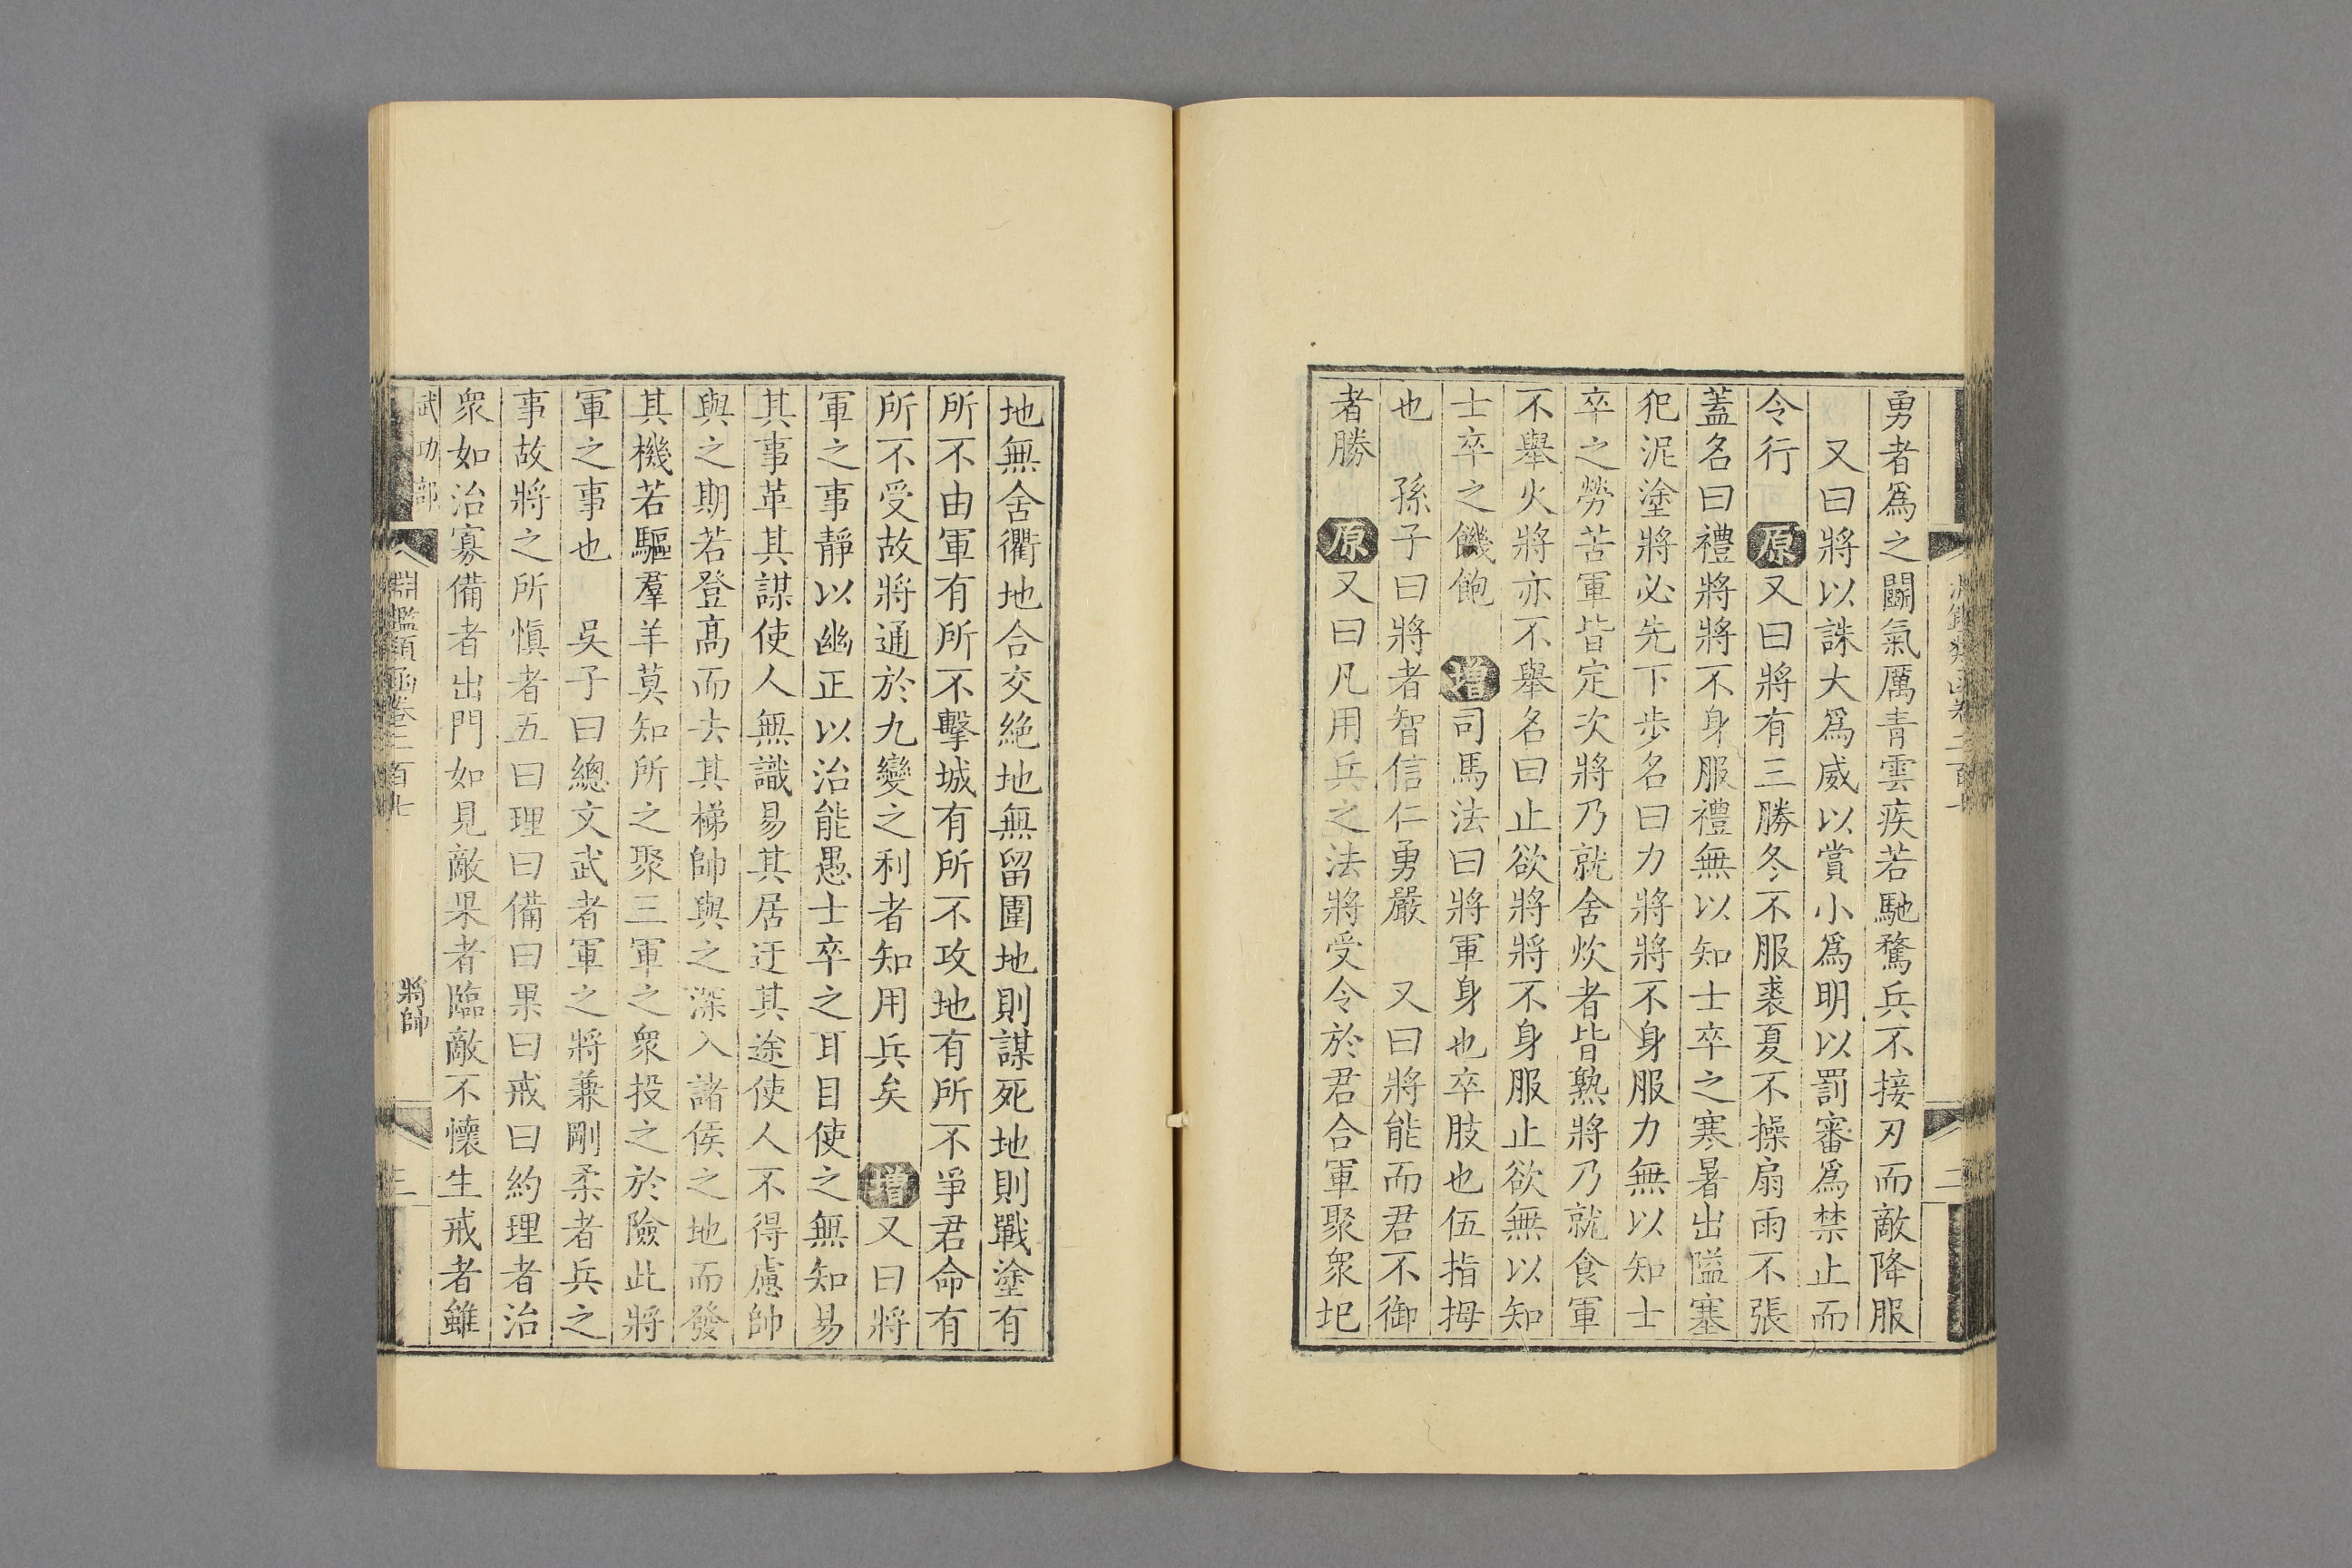 勇者爲之鬭氣厲青雲疾若馳騖兵不接刃而敵降服
又曰將以誅大爲威以賞小爲明以罰審爲禁止而
令行 原又曰將有三勝冬不服裘夏不操扇雨不張
蓋名曰禮將將不身服禮無以知士卒之寒暑出隘塞
犯泥塗將必先下步名曰力將將不身服力無以知士
卒之勞苦軍皆定次將乃就舍炊者皆熟將乃就食軍
不舉火將亦不舉名曰止欲將將不身服止欲無以知
士卒之饑飽 增司馬法曰將軍身也卒肢也伍指拇
也 孫子曰將者智信仁勇嚴 又曰將能而君不御
者勝 原又曰凡用兵之法將受令於君合軍聚衆圮
地無舍衢地合交絶地無留圍地則謀死地則戰塗有
所不由軍有所不擊城有所不攻地有所不爭君命有
所不受故將通於九變之利者知用兵矣 增又曰將
軍之事靜以幽正以治能愚士卒之耳目使之無知易
其事革其謀使人無識易其居迂其途使人不得慮帥
與之期若登高而去其梯帥與之深入諸侯之地而發
其機若驅羣羊莫知所之聚三軍之衆投之於險此將
軍之事也 吳子曰總文武者軍之將兼剛柔者兵之
事故將之所愼者五曰理曰備曰果曰戒曰約理者治
衆如治寡備者出門如見敵果者臨敵不懷生戒者雖
武功部
淵鑑類函卷二百七 將帥 三